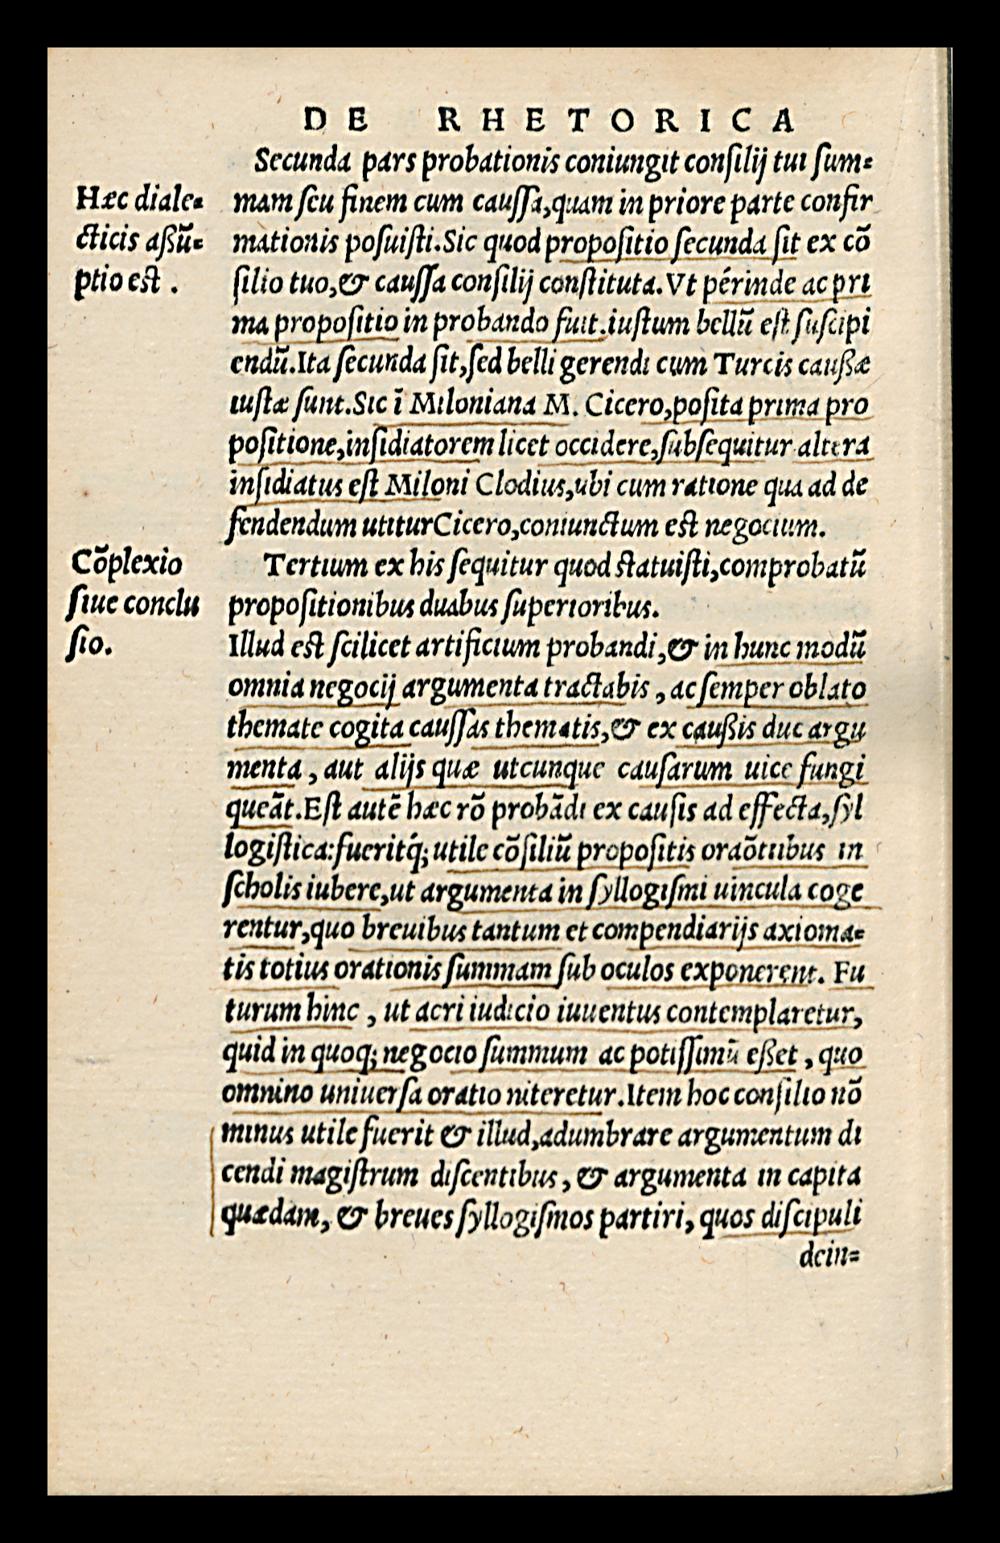 DE RHETORICA
Secunda pars probationis coniungit conſilij tui ſum⸗
Hæc diale⸗
mam ſeu finem cum cauſſa,quam in priore parte confir
cticis aßū⸗
mationis poſuiſti.Sic quod propoſitio ſecunda ſit ex cō
ptio eſt .
ſilio tuo,& cauſſa conſilij conſtituta.Vt périnde ac pri
ma propoſitio in probando fuit.iuſtum bellū eſt ſuſcipi
endū.Ita ſecunda ſit,ſed belli gerendi cum Turcis caußæ
iuſtæ ſunt.Sic ī Miloniana M. Cicero,poſita prima pro
poſitione,inſidiatorem licet occidere,ſubſequitur altera
inſidiatus eſt Miloni Clodius,ubi cum ratione qua ad de
fendendum utiturCicero,coniunctum eſt negocium.
Cōplexio
Tertium ex his ſequitur quod ſtatuiſti,comprobatū
ſiue conclu
propoſitionibus duabus ſuperioribus.
ſio.
Illud eſt ſcilicet artificium probandi,& in hunc modū
omnia negocij argumenta tractabis , ac ſemper oblato
themate cogita cauſſas thematis,& ex caußis duc argu
menta , aut alijs quæ utcunque cauſarum uice fungi
queāt.Eſt autē hæc rō probādi ex cauſis ad effecta,ſyl
logiſtica:fueritq́; utile cōſiliū propoſitis oraōtiibus in
ſcholis iubere,ut argumenta in ſyllogiſmi uincula coge
rentur,quo breuibus tantum et compendiarijs axioma⸗
tis totius orationis ſummam ſub oculos exponerent. Fu
turum hinc , ut acri iudicio iuuentus contemplaretur,
quid in quoq; negocio ſummum ac potiſſimū eßet , quo
omnino uniuerſa oratio niteretur.Item hoc conſilio nō
minus utile fuerit & illud,adumbrare argumentum di
cendi magiſtrum diſcentibus, & argumenta in capita
quædam, & breues ſyllogiſmos partiri, quos diſcipuli
dein⸗